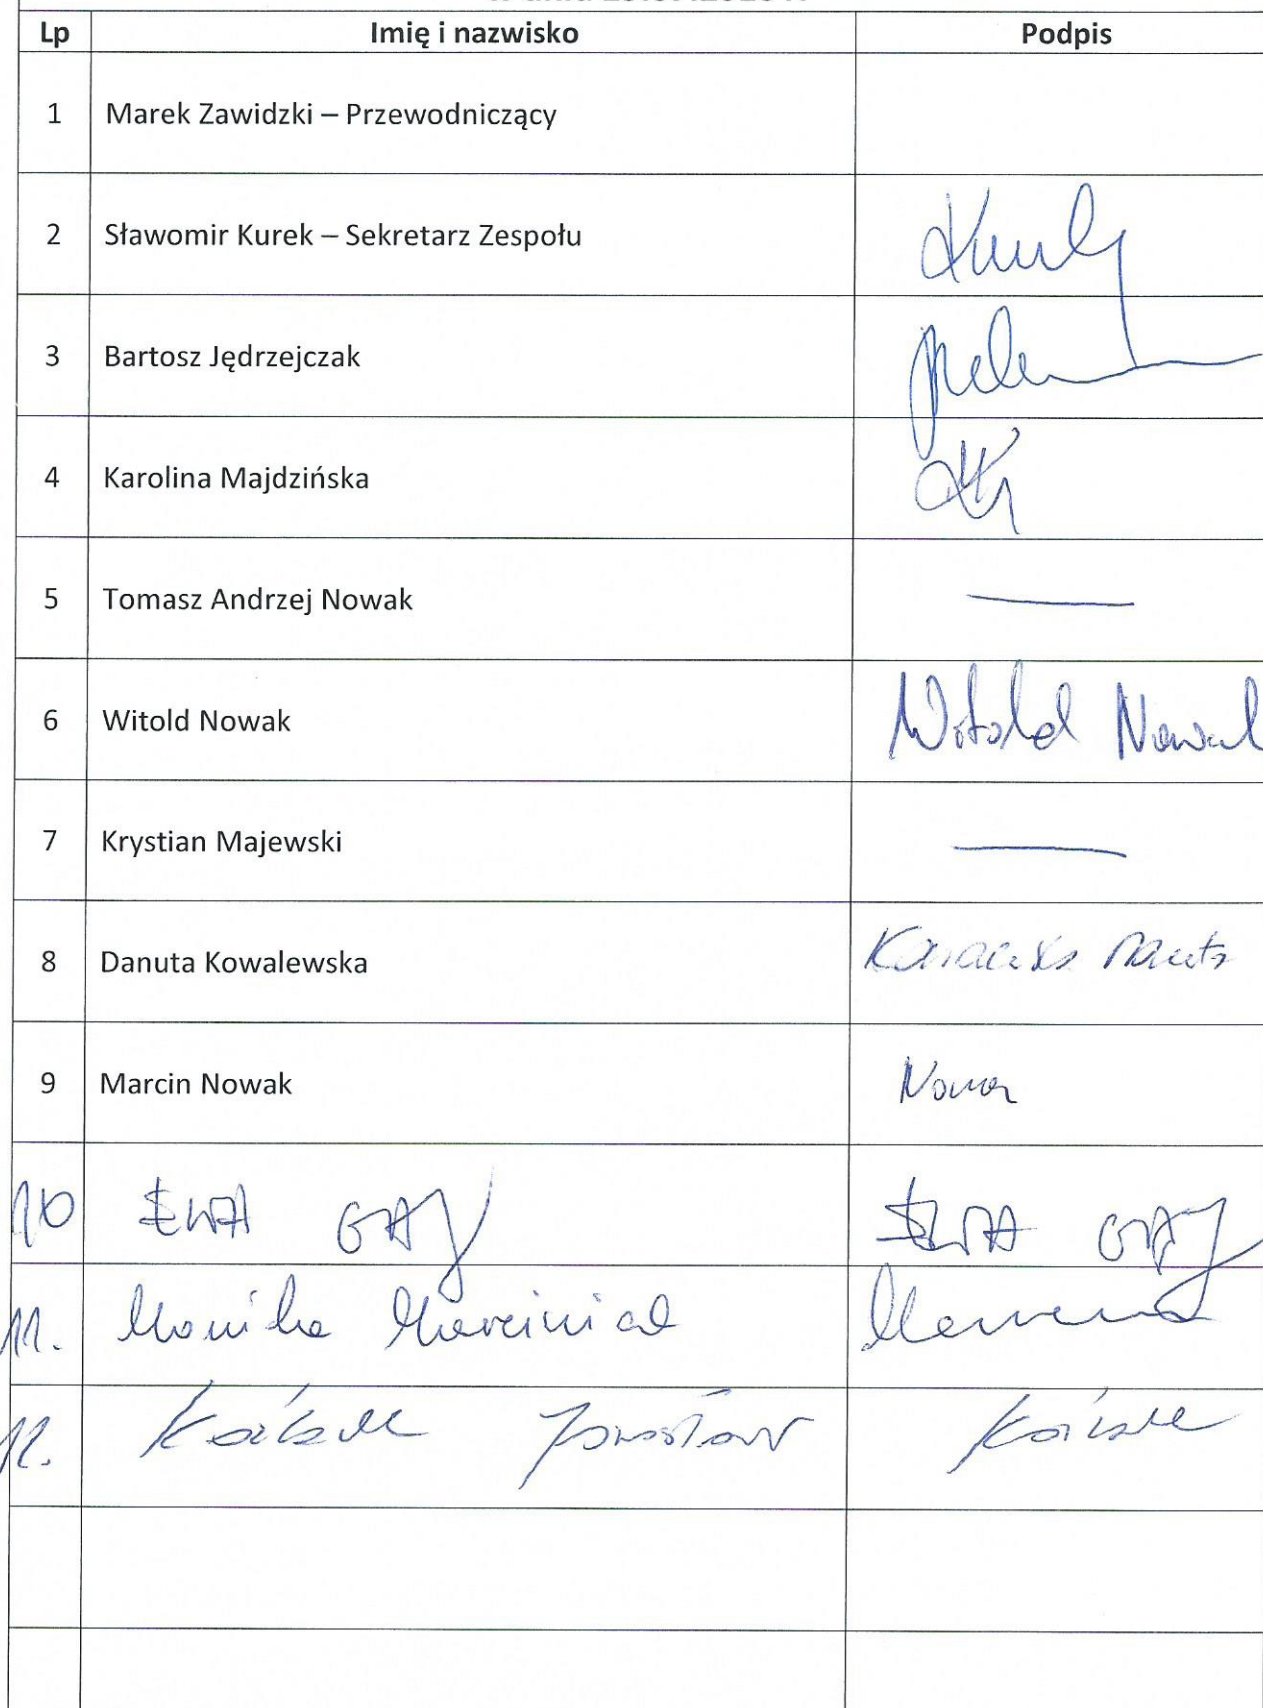 Lp Imię i nazwisko Podpis
1 Marek Zawidzki – Przewodniczący
2 Sławomir Kurek – Sekretarz Zespołu
3 Bartosz Jędrzejczak
4 Karolina Majdzińska
5 Tomasz Andrzej Nowak —
6 Witold Nowak Witold Nowak
7 Krystian Majewski —
8 Danuta Kowalewska
9 Marcin Nowak
10 EWA GAJ EWA GAJ
11. Monika Marciniak
12. Jarosław